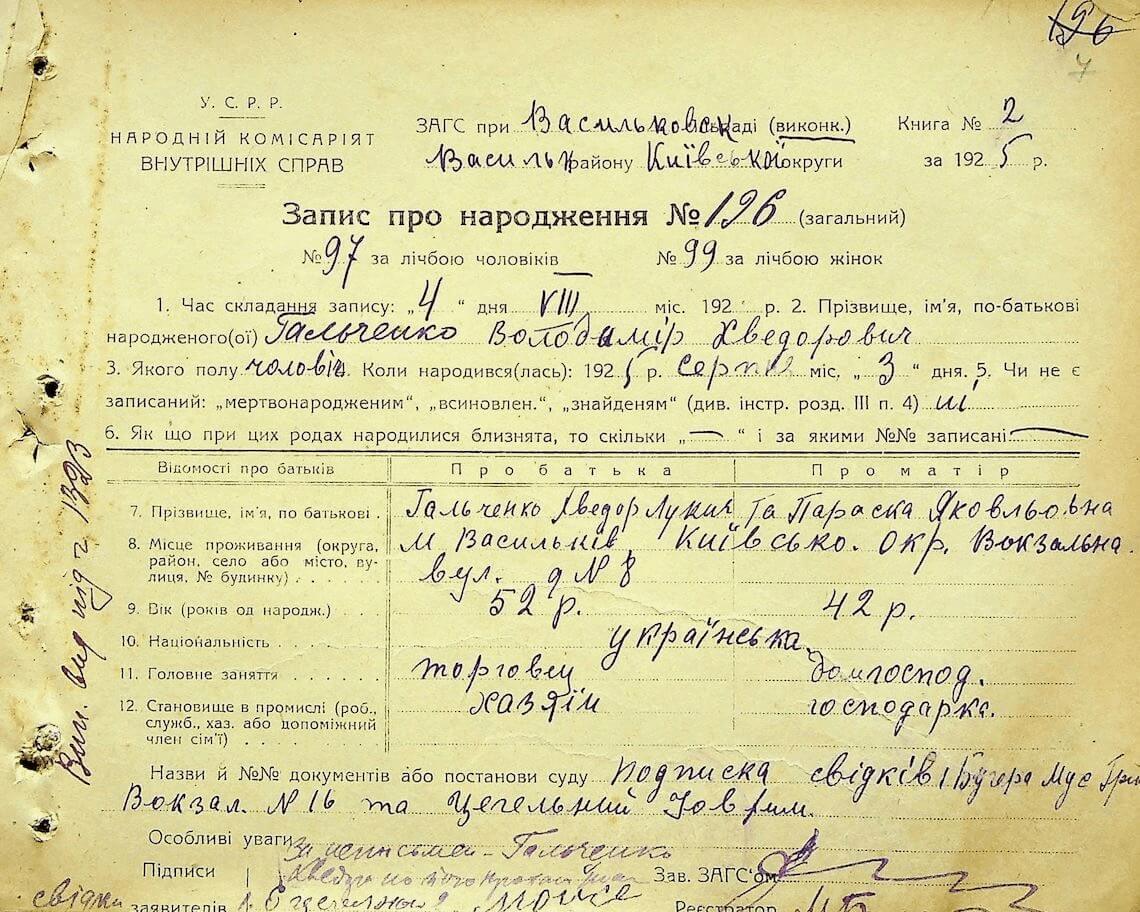 196
7
У. С. Р. Р.
НАРОДНІЙ КОМІСАРІЯТ
ВНУТРІШНІХ СПРАВ
ЗАГС при Васильковск міськраді (виконк.) Книга № 2
Васильк району Київської округи за 1925 р.
Запис про народження № 196 (загальний)
№ 97 за лічбою чоловіків № 99 за лічбою жінок
1. Час складання запису: „4“ дня VIII міс. 192 р. 2. Прізвище, ім'я, по-батькові
народженого(ої) Гальченко Володимір Хведорович
3. Якого полу чоловіч. Коли народився(лась): 1925 р. серпня міс. „3“ дня. 5. Чи не є
записаний: „мертвонародженим“, „всиновлен.“, „знайденям“ (див. інстр. розд. III п. 4)
6. Як що при цих родах народилися близнята, то скільки „—“ і за якими №№ записані —
Відомості про батьків Про батька Про матір
7. Прізвище, ім'я, по батькові . Гальченко Хведор Лукич та Параска Яковльовна
8. Місце проживання (округа, район, село або місто, вулиця, № будинку) . . . . м Васильків Київсько. окр. Вокзальна
вул. д N 8
9. Вік (років од народж.) . . . 52 р. 42 р.
10. Національність . . . . українська
11. Головне заняття . . . . торговец домгоспод.
12. Становище в промислі (роб., служб., хаз. або допоміжний член сім'ї) . . . . . хазяїн господарка.
Назви й №№ документів або постанови суду Подписка свідків
Вокзал. N 16 та Цегельний
Особливі уваги
За неписьмен - Гальченко
Підписи
Зав. ЗАГС'ом
свідки
заявителів
Реєстратор
Вип. вид під г